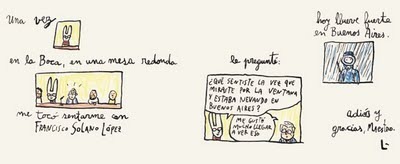 Una vez
en la Boca, en una mesa redonda
me tocó sentarme con
FRANCISCO SOLANO LÓPEZ
le pregunté:
¿QUÉ SENTISTE LA VEZ QUE
MIRASTE POR LA VENTANA
Y ESTABA NEVANDO EN
BUENOS AIRES?
ME GUSTÓ
MUCHO LLEGAR
A VER ESO
hoy llueve fuerte
en Buenos Aires.
adiós y
gracias, Maestro.
L